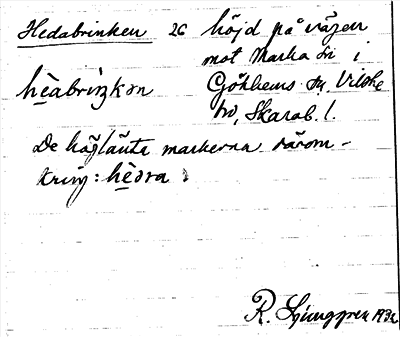 Hedabrinken 26 höjd på vägen
mot Marka sn i
hèabriŋkən Gökhems sn, Vilske
hd, Skarab. l.
De höglänta markerna därom-
kring: hèdra
R. Ljunggren 1932